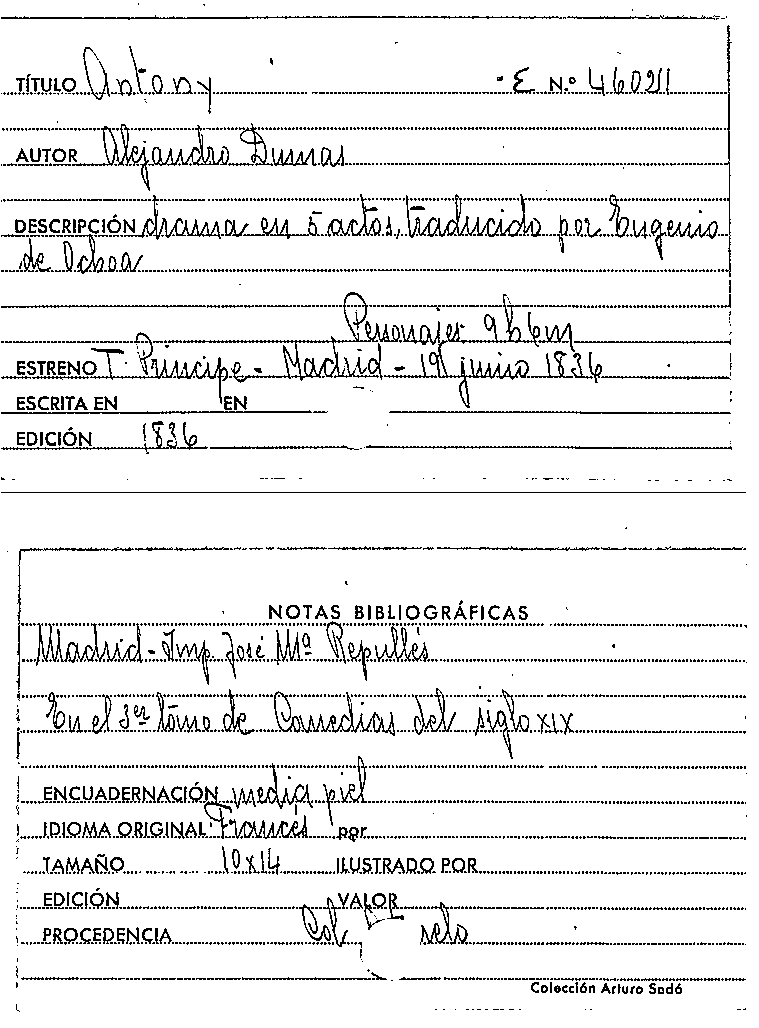 TÍTULO Antony E N.º 46021
AUTOR Alejandro Dumas
DESCRIPCIÓN drama en 5 actos, traducido por Eugenio
de Ochoa
Personajes 9h 6m
ESTRENO T. Principe - Madrid - 19 junio 1836
ESCRITA EN EN
EDICIÓN 1836
NOTAS BIBLIOGRÁFICAS
Madrid - Imp. José Mª Repullés
En el 3er tomo de Comedias del siglo XIX
ENCUADERNACIÓN media piel
IDIOMA ORIGINAL Francés por
TAMAÑO 10 x 14 ILUSTRADO POR
EDICIÓN VALOR
PROCEDENCIA Col. selo
Colección Arturo Sedó